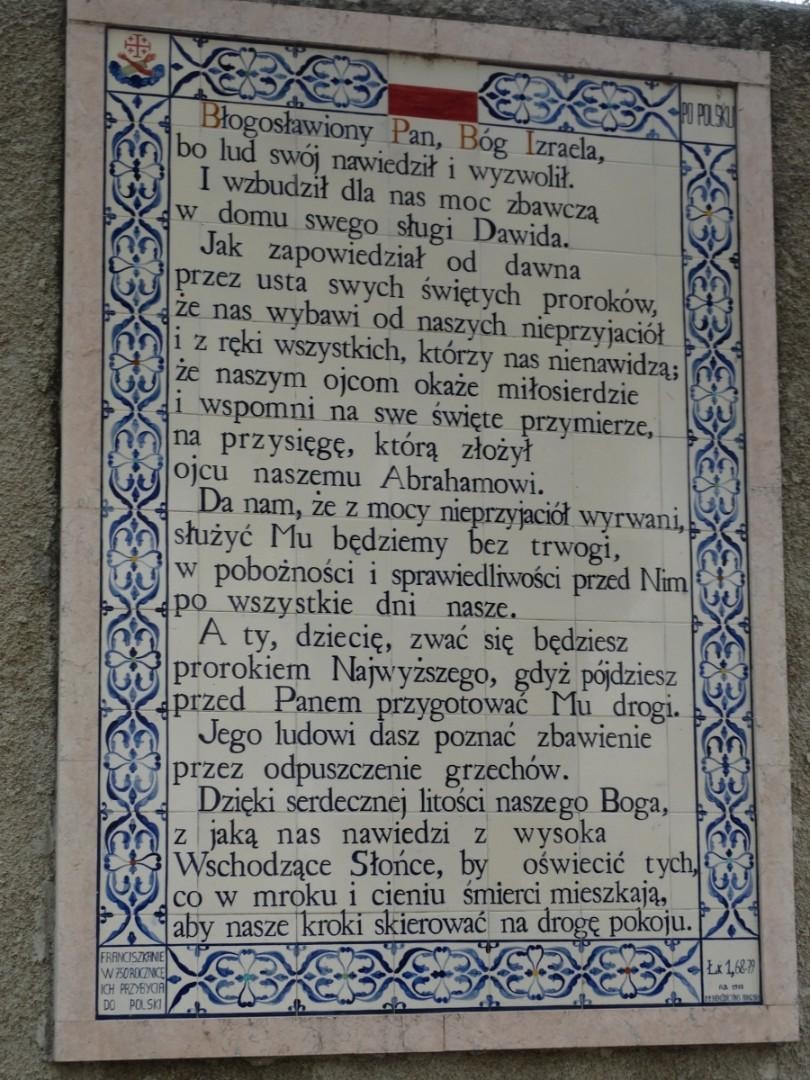 PO POLSKU
Błogosławiony Pan, Bóg Izraela,
bo lud swój nawiedził i wyzwolił.
I wzbudził dla nas moc zbawczą
w domu swego sługi Dawida.
Jak zapowiedział od dawna
przez usta swych świętych proroków,
że nas wybawi od naszych nieprzyjaciół
i z ręki wszystkich, którzy nas nienawidzą;
że naszym ojcom okaże miłosierdzie
i wspomni na swe święte przymierze,
na przysięgę, którą złożył
ojcu naszemu Abrahamowi.
Da nam, że z mocy nieprzyjaciół wyrwani,
służyć Mu będziemy bez trwogi,
w pobożności i sprawiedliwości przed Nim
po wszystkie dni nasze.
A ty, dziecię, zwać się będziesz
prorokiem Najwyższego, gdyż pójdziesz
przed Panem przygotować Mu drogi.
Jego ludowi dasz poznać zbawienie
przez odpuszczenie grzechów.
Dzięki serdecznej litości naszego Boga,
z jaką nas nawiedzi z wysoka
Wschodzące Słońce, by oświecić tych,
co w mroku i cieniu śmierci mieszkają,
aby nasze kroki skierować na drogę pokoju.
FRANCISZKANIE
W 750 ROCZNICĘ
ICH PRZYBYCIA
DO POLSKI
Łk 1,68-79